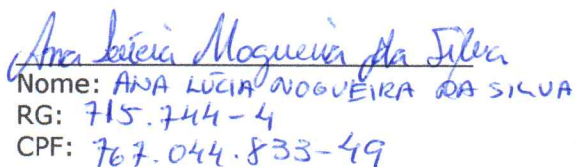 Ana Lúcia Nogueira da Silva
Nome: ANA LÚCIA NOGUEIRA DA SILVA
RG: 715.744-4
CPF: 767.044.833-49